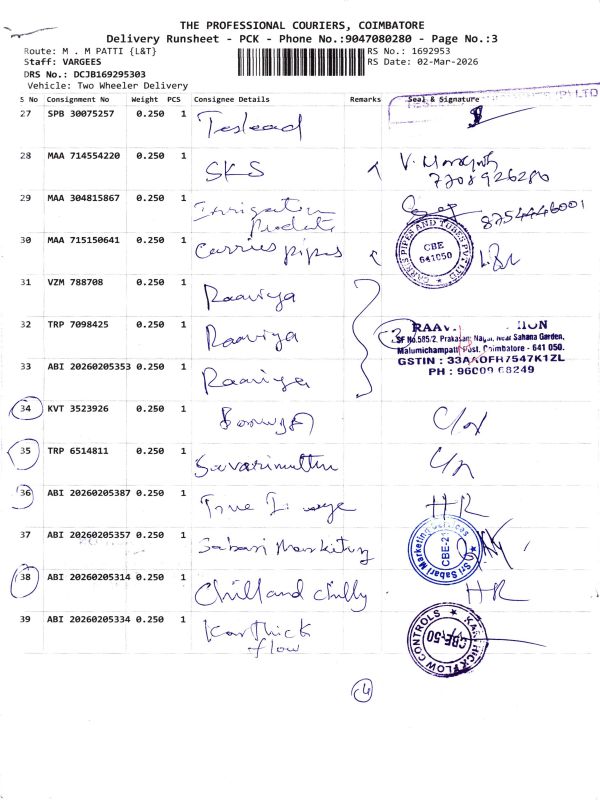 THE PROFESSIONAL COURIERS, COIMBATORE
Delivery Runsheet - PCK - Phone No.:9047080280 - Page No.:3
Route: M . M PATTI {L&T}
RS No.: 1692953
Staff: VARGEES
RS Date: 02-Mar-2026
DRS No.: DCJB169295303
Vehicle: Two Wheeler Delivery
S No Consignment No Weight PCS Consignee Details Remarks Seal & Signature
27 SPB 30075257 0.250 1 Teslead
28 MAA 714554220 0.250 1 SKS
7708926280
29 MAA 304815867 0.250 1 Irrigation Products 8754446001
30 MAA 715150641 0.250 1 Carries pipes
CARRIS PIPES AND TUBES PVT LTD
CBE
641050
31 VZM 788708 0.250 1 Raaviya
32 TRP 7098425 0.250 1 Raaviya 3
SF No.585/2, Prakasam Nagar, Near Sahana Garden,
Malumichampatti Post, Coimbatore - 641 050.
GSTIN : 33AAOFR7547K1ZL
PH : 96009 68249
33 ABI 20260205353 0.250 1 Raaviya
34 KVT 3523926 0.250 1
35 TRP 6514811 0.250 1 Savarimuthu
36 ABI 20260205387 0.250 1 True Image HR
37 ABI 20260205357 0.250 1 Sabari Marketing
Sri Sabari Marketing Services
CBE-21
38 ABI 20260205314 0.250 1 Chill and chilly HR
39 ABI 20260205334 0.250 1 Karthick flow
KARTHICK FLOW CONTROLS
CBE-50
4